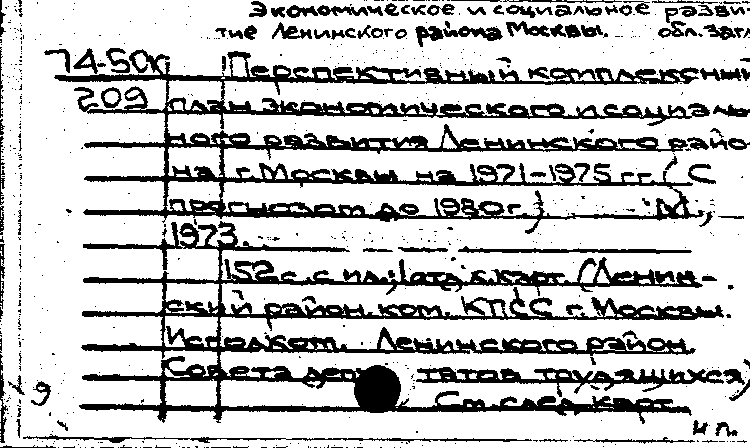 Экономическое и социальное разви-
тие Ленинского района Москвы. обл. загл
74-50к Перспективный комплексный
209 план экономического и социаль
ного развития Ленинского райо-
на г. Москвы на 1971-1975 гг. (С
прогнозом до 1980г.) М.,
1973.
152с. с ил.; 1 отд. к. карт. (Ленин-
ский район. ком. КПСС г. Москвы.
Исполком. Ленинского район.
Совета деп татов трудящихся)
9 См. след. карт.
н п.